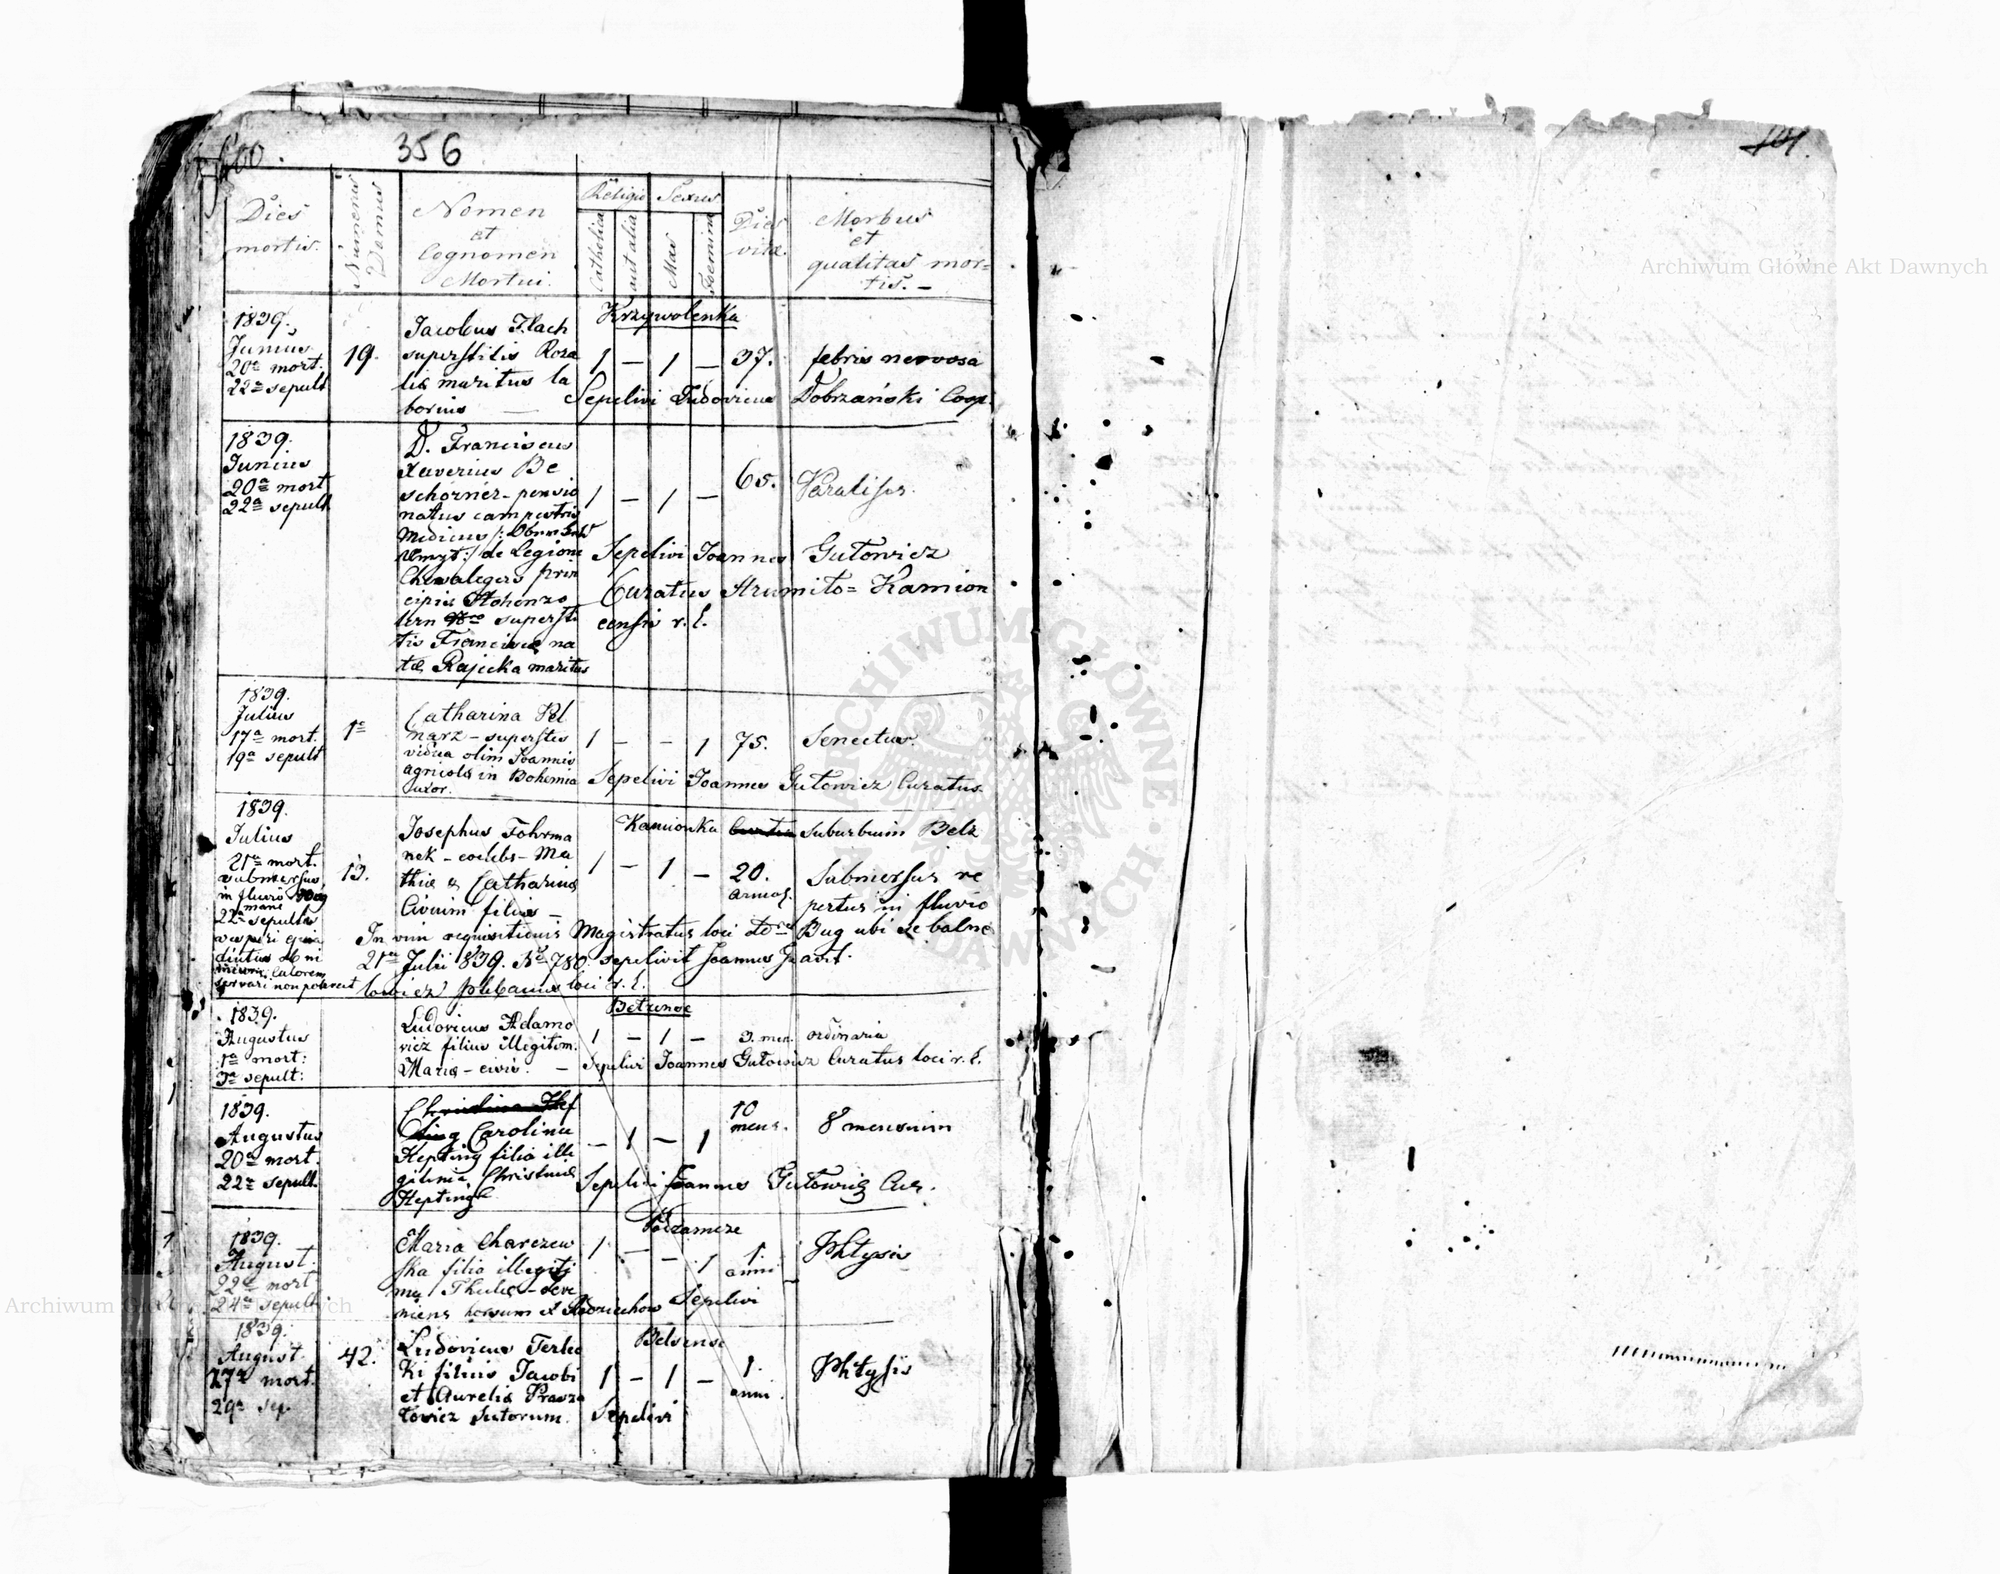 400.
356
401.
Dies mortis.
Numerus Domus
Nomen et Cognomen Mortui.
Religio
Catholica
aut alia
Sexus
Mas
Foemina
Dies vitæ
Morbus et qualitas mor=
tis. –
Krzywolenka
1839.
Junius
20a mort.
22a sepult
19.
Jacobus Flach
superstitis Rosa
liæ maritus la
borius
1 – 1 – 37. febris nervosa
Sepelivi Ludovicus Dobrzański Coop.
1839.
Junius
20a mort
22a sepult
D. Franciscus
Xaverius Be
schörner – pensio
natus campestris
Medicus /:
:/ de Legione
Chevalegers prin
cipis Hohenzo
lern supersti
tis Franciscæ na
tæ Rajicka maritus
1 – 1 – 65. Paralisis.
Sepelivi Joannes Gutowicz
Curatus Strumito= Kamion
censis r. l.
1839.
Julius
17a mort.
19a sepult
1
Catharina Pel
narz – superstes
vidua olim Joannis
agricolæ in Bohemia
uxor.
1 – – 1 75. Senectus.
Sepelivi Joannes Gutowicz Curatus
Kamionka suburbium Belz
1839.
Julius
21a mort.
submersus
in fluvio Bug
mane
22a sepultus
vesperi
calorem
servari non poterat
13.
Josephus Fohrma
nek – coelebs – Ma
thiæ & Catharinæ
Civium filius –
1 – 1 – 20.
annor.
Submersus re
pertus in fluvio
Bug ubi se balne
avit.
In vim requisitionis Magistratus loci
21a Julii 839. No 780. sepelivit Joannes Gu
towicz loci r. l.
Betzense
1839.
Augustus
1a mort:
3a sepult:
Ludovicus Adamo
wicz filius illegitim.
Mariæ – civis. –
1 – 1 – 3. men. ordinaria
Sepelivi Joannes Gutowicz Curatus loci r. l.
1839.
Augustus
20a mort.
22a sepult.
Christina Hep
ting Carolina
Hepting filia ille
gitima Christinæ
Hepting
– 1 – 1 10
mens. 8 mensium
Sepelivi Joannes Gutowicz Cur.
Podzamcze
1839.
August.
22a mort
24a sepult
Maria Charzew
ska filia illegiti
ma Theclæ –
1 – – 1 1.
anni Phtysis
Sepelivi
Belsense
1839.
August.
27a mort.
29a sep.
42.
Ludovicus Terlec
ki filius Jacobi
et Aureliæ
Sutorum.
1 – 1 – 1.
anni. Phtysis
Sepelivi
ARCHIWUM GŁÓWNE AKT DAWNYCH
Archiwum Główne Akt Dawnych
Archiwum Główne Akt Dawnych